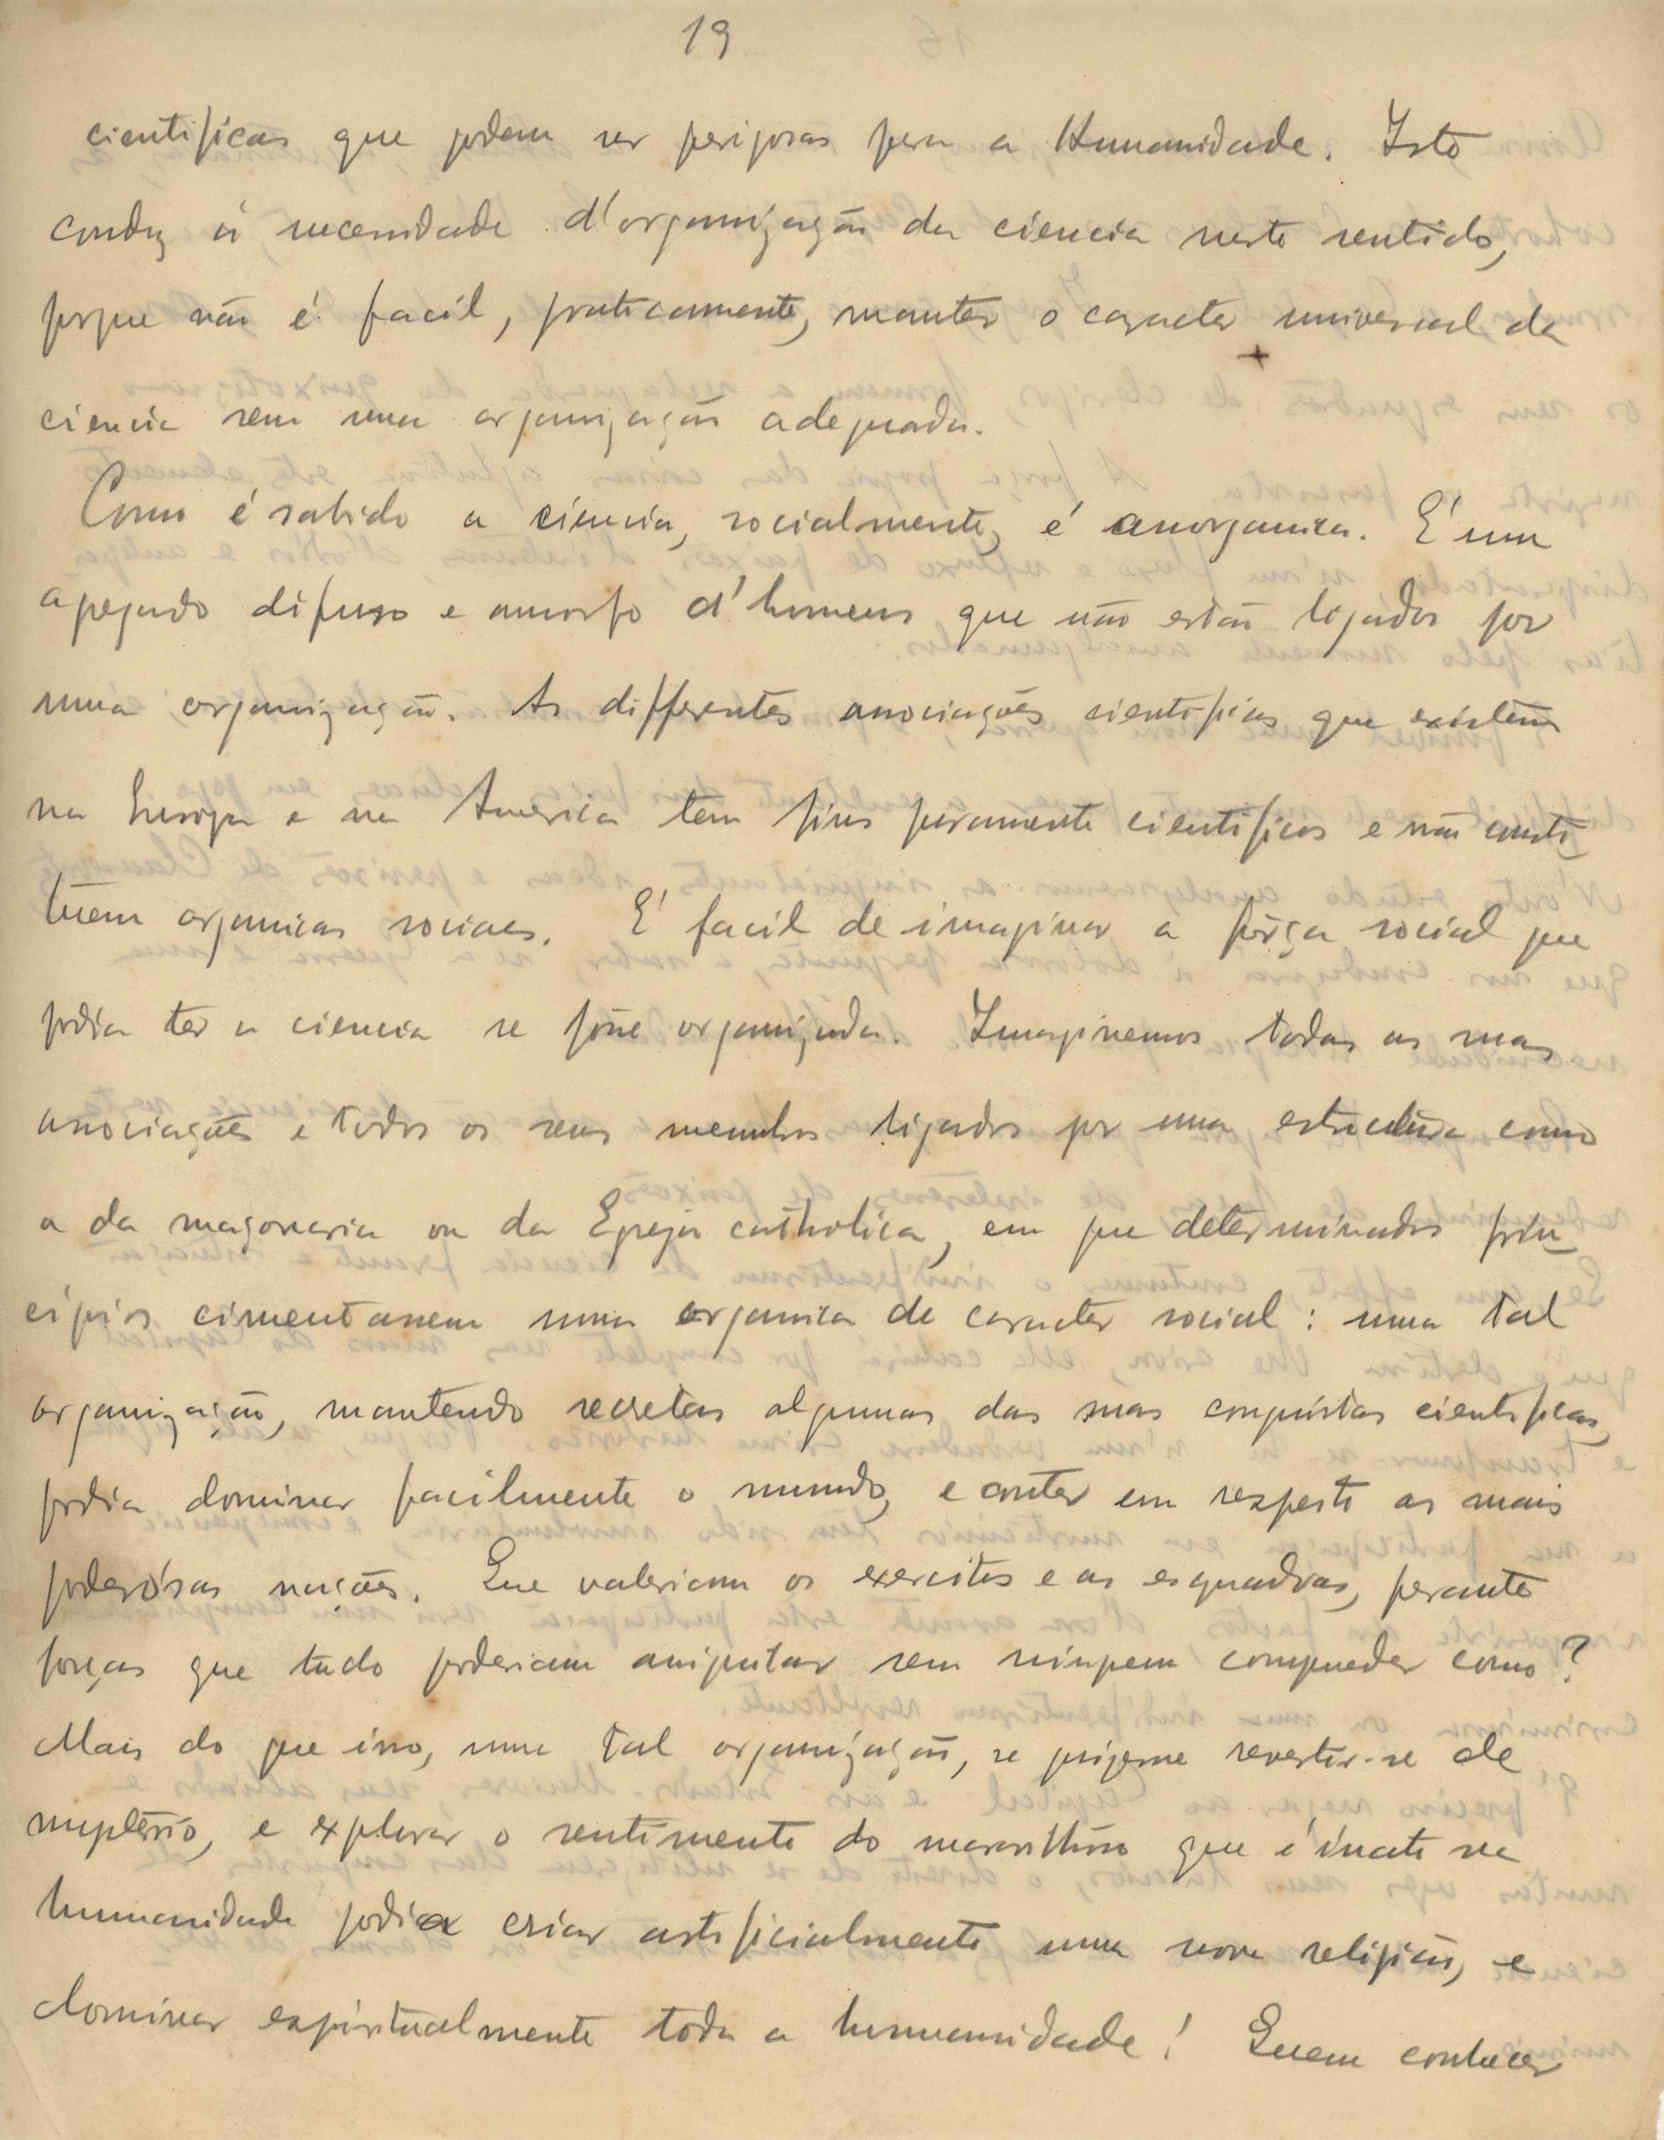 19
cientificas que podem ser perigosas para a Humanidade. Isto
conduz á necessidade d'organização da ciencia neste sentido,
porque não é facil, praticamente, manter o caracter universal da
ciencia sem uma organização adequada.
Como é sabido a ciencia, socialmente, é anorganica. É um
agregado difuso e amorfo d'homens que não estão ligados por
uma organização. As differentes associações cientificas que existem
na Europa e na America tem fins puramente cientificos e não consti-
tuem organicas sociaes. É facil de imaginar a força social que
podia ter a ciencia se fosse organizada. Imaginemos todas as suas
associações e todos os seus membros ligados por uma estructura como
a da maçonaria ou da Egreja catholica, em que determinados prin-
cipios cimentassem uma organica de caracter social: uma tal
organização, mantendo secretas algumas das suas conquistas cientificas,
podia dominar facilmente o mundo, e conter em respeito as mais
poderósas nações. Que valeriam os exercitos e as esquadras, perante
forças que tudo poderiam aniquilar sem ninguem compreender como?
Mais do que isso, uma tal organização, se quizesse revestir-se de
mysterio, e explorar o sentimento do maravilhoso que é inato na
humanidade podia criar artificialmente uma nova religião, e
dominar espiritualmente toda a humanidade! Quem conhecer